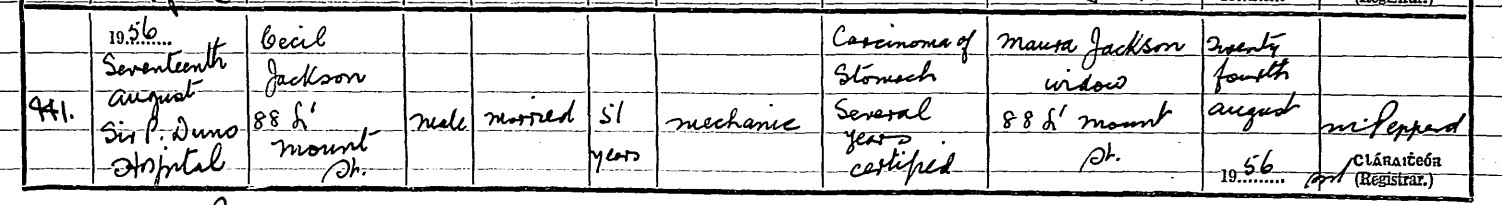 441.
1956
Seventeenth
august
Sir P. Duns
Hospital
Cecil
Jackson
88 L'
mount
St.
male
married
51
years
mechanic
Carcinoma of
Stomach
Several
years
certified
Maura Jackson
widow
88 L' mount
St.
Twenty
fourth
august
1956
M Peppard
Cláraitheóir
(Registrar.)
(Registrar.)